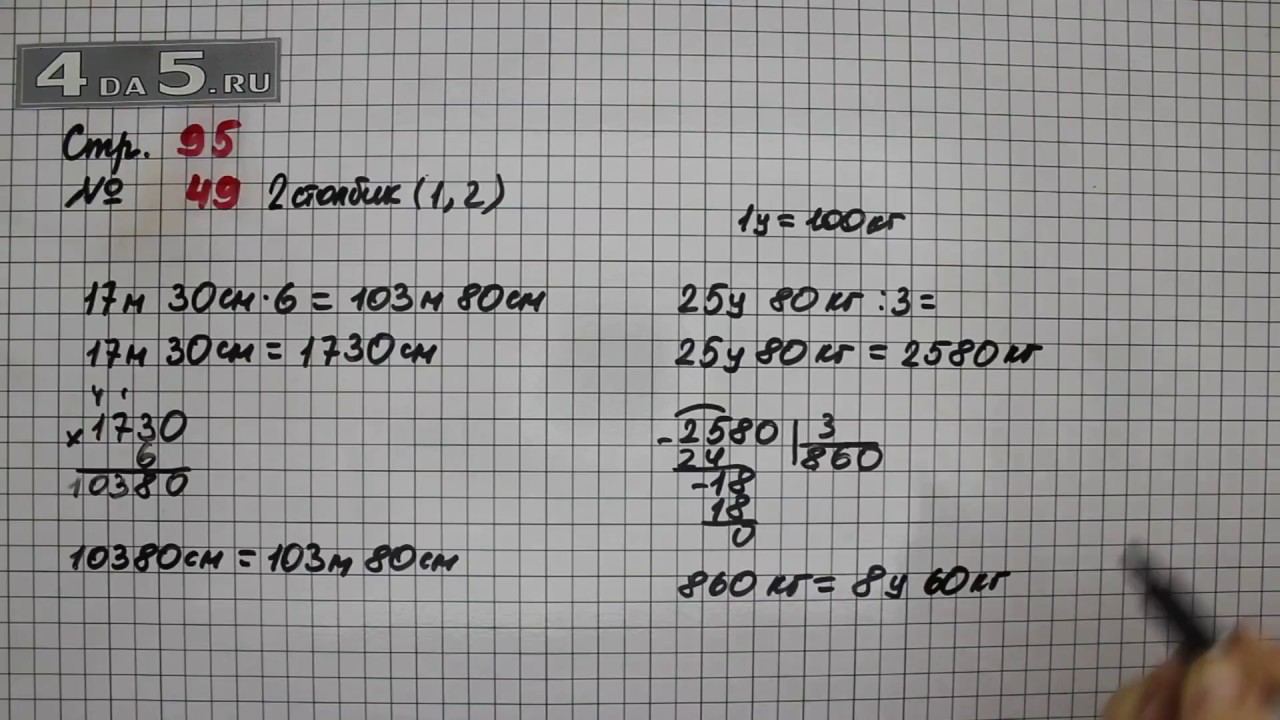 4DA5.RU
Стр. 95
№ 49 2 столбик (1, 2)
1ц = 100кг
17м 30см · 6 = 103м 80см
17м 30см = 1730см
4 1
× 1730
6
10380
10380см = 103м 80см
25ц 80кг : 3 =
25ц 80кг = 2580кг
- 2580 | 3
24 | 860
-18
18
0
860 кг = 8ц 60кг